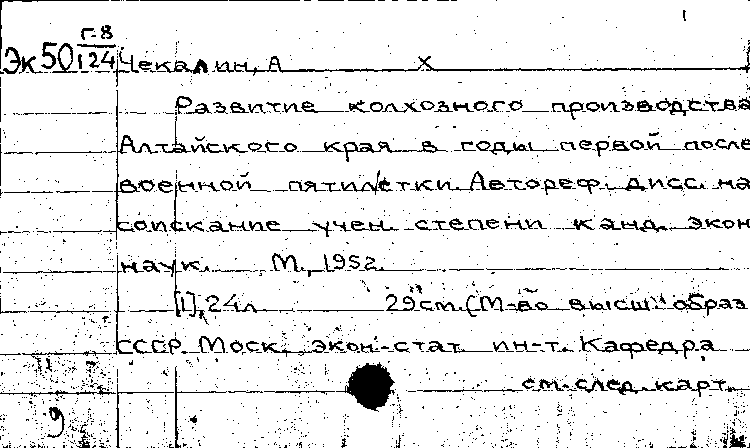 Г-8
Эк 50 124 Чекалин, А х
Развитие колхозного производства
Алтайского края в годы первой после
военной пятилетки. Автореф. дисс. на
соискание учен. степени канд. экон
наук. М., 1952.
[1], 24 л 29 см. (М-во высш. образ
СССР. Моск. экон.-стат ин-т. Кафедра
см. след. карт.
9